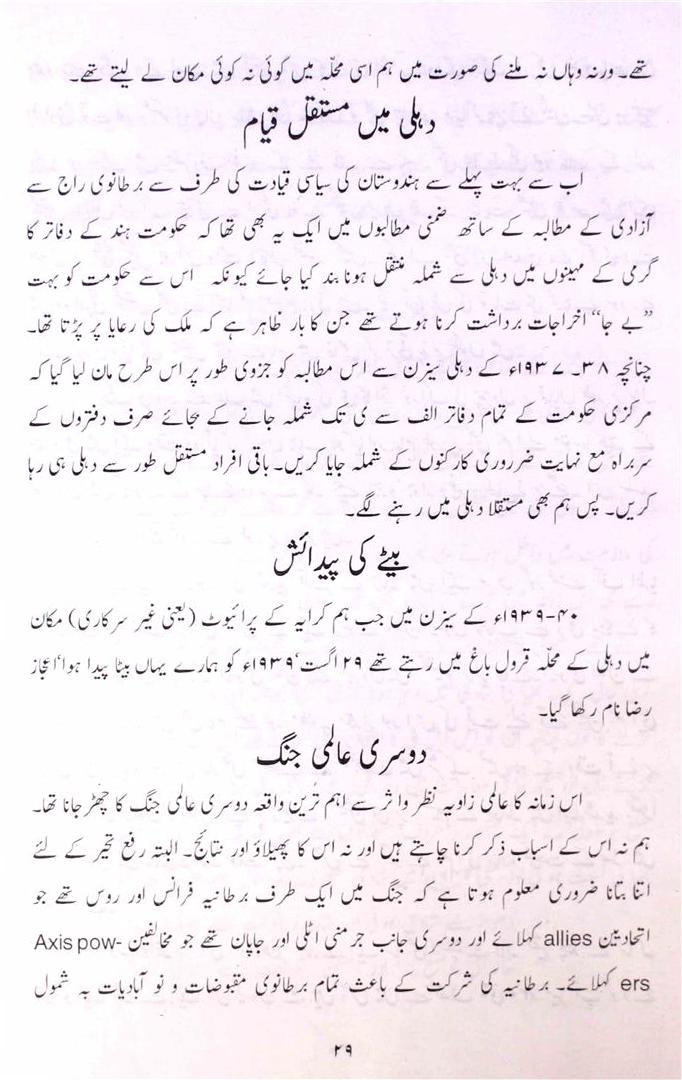 تھے۔ ورنہ وہاں نہ ملنے کی صورت میں ہم اسی محلّہ میں کوئی نہ کوئی مکان لے لیتے تھے۔
دہلی میں مستقل قیام
اب سے بہت پہلے سے ہندوستان کی سیاسی قیادت کی طرف سے برطانوی راج سے
آزادی کے مطالبہ کے ساتھ ضمنی مطالبوں میں ایک یہ بھی تھا کہ حکومت ہند کے دفاتر کا
گرمی کے مہینوں میں دہلی سے شملہ منتقل ہونا بند کیا جائے کیونکہ اس سے حکومت کو بہت
”بے جا“ اخراجات برداشت کرنا ہوتے تھے جن کا بار ظاہر ہے کہ ملک کی رعایا پر پڑتا تھا۔
چنانچہ ۳۸۔۱۹۳۷ء کے دہلی سیزن سے اس مطالبہ کو جزوی طور پر اس طرح مان لیا گیا کہ
مرکزی حکومت کے تمام دفاتر الف سے ی تک شملہ جانے کے بجائے صرف دفتروں کے
سربراہ مع نہایت ضروری کارکنوں کے شملہ جایا کریں۔ باقی افراد مستقل طور سے دہلی ہی رہا
کریں۔ پس ہم بھی مستقلا دہلی میں رہنے لگے۔
بیٹے کی پیدائش
۴۰-۱۹۳۹ء کے سیزن میں جب ہم کرایہ کے پرائیوٹ (یعنی غیر سرکاری) مکان
میں دہلی کے محلّہ قرول باغ میں رہتے تھے ۲۹ اگست‘ ۱۹۳۹ء کو ہمارے یہاں بیٹا پیدا ہوا‘ اعجاز
رضا نام رکھا گیا۔
دوسری عالمی جنگ
اس زمانہ کا عالمی زاویہ نظر واثر سے اہم ترین واقعہ دوسری عالمی جنگ کا چھڑ جانا تھا۔
ہم نہ اس کے اسباب ذکر کرنا چاہتے ہیں اور نہ اس کا پھیلاؤ اور نتائج۔ البتہ رفع تحیر کے لئے
اتنا بتانا ضروری معلوم ہوتا ہے کہ جنگ میں ایک طرف برطانیہ فرانس اور روس تھے جو
اتحادیین allies کہلائے اور دوسری جانب جرمنی اٹلی اور جاپان تھے جو مخالفین Axis pow-
ers کہلائے۔ برطانیہ کی شرکت کے باعث تمام برطانوی مقبوضات و نو آبادیات بہ شمول
۲۹